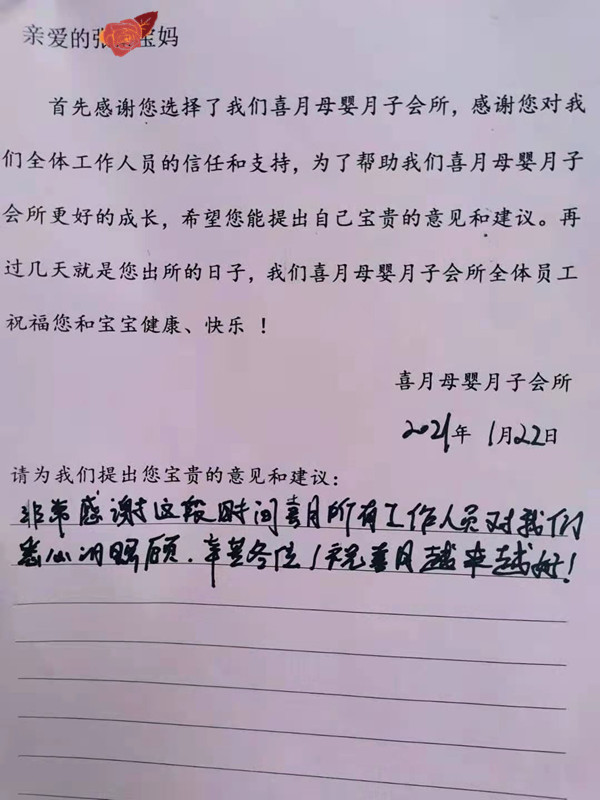 亲爱的张宝妈
首先感谢您选择了我们喜月母婴月子会所，感谢您对我
们全体工作人员的信任和支持，为了帮助我们喜月母婴月子
会所更好的成长，希望您能提出自己宝贵的意见和建议。再
过几天就是您出所的日子，我们喜月母婴月子会所全体员工
祝福您和宝宝健康、快乐！
喜月母婴月子会所
2021年 1月22日
请为我们提出您宝贵的意见和建议：
非常感谢这段时间喜月所有工作人员对我们
悉心的照顾．辛苦各位！祝喜月越来越好！